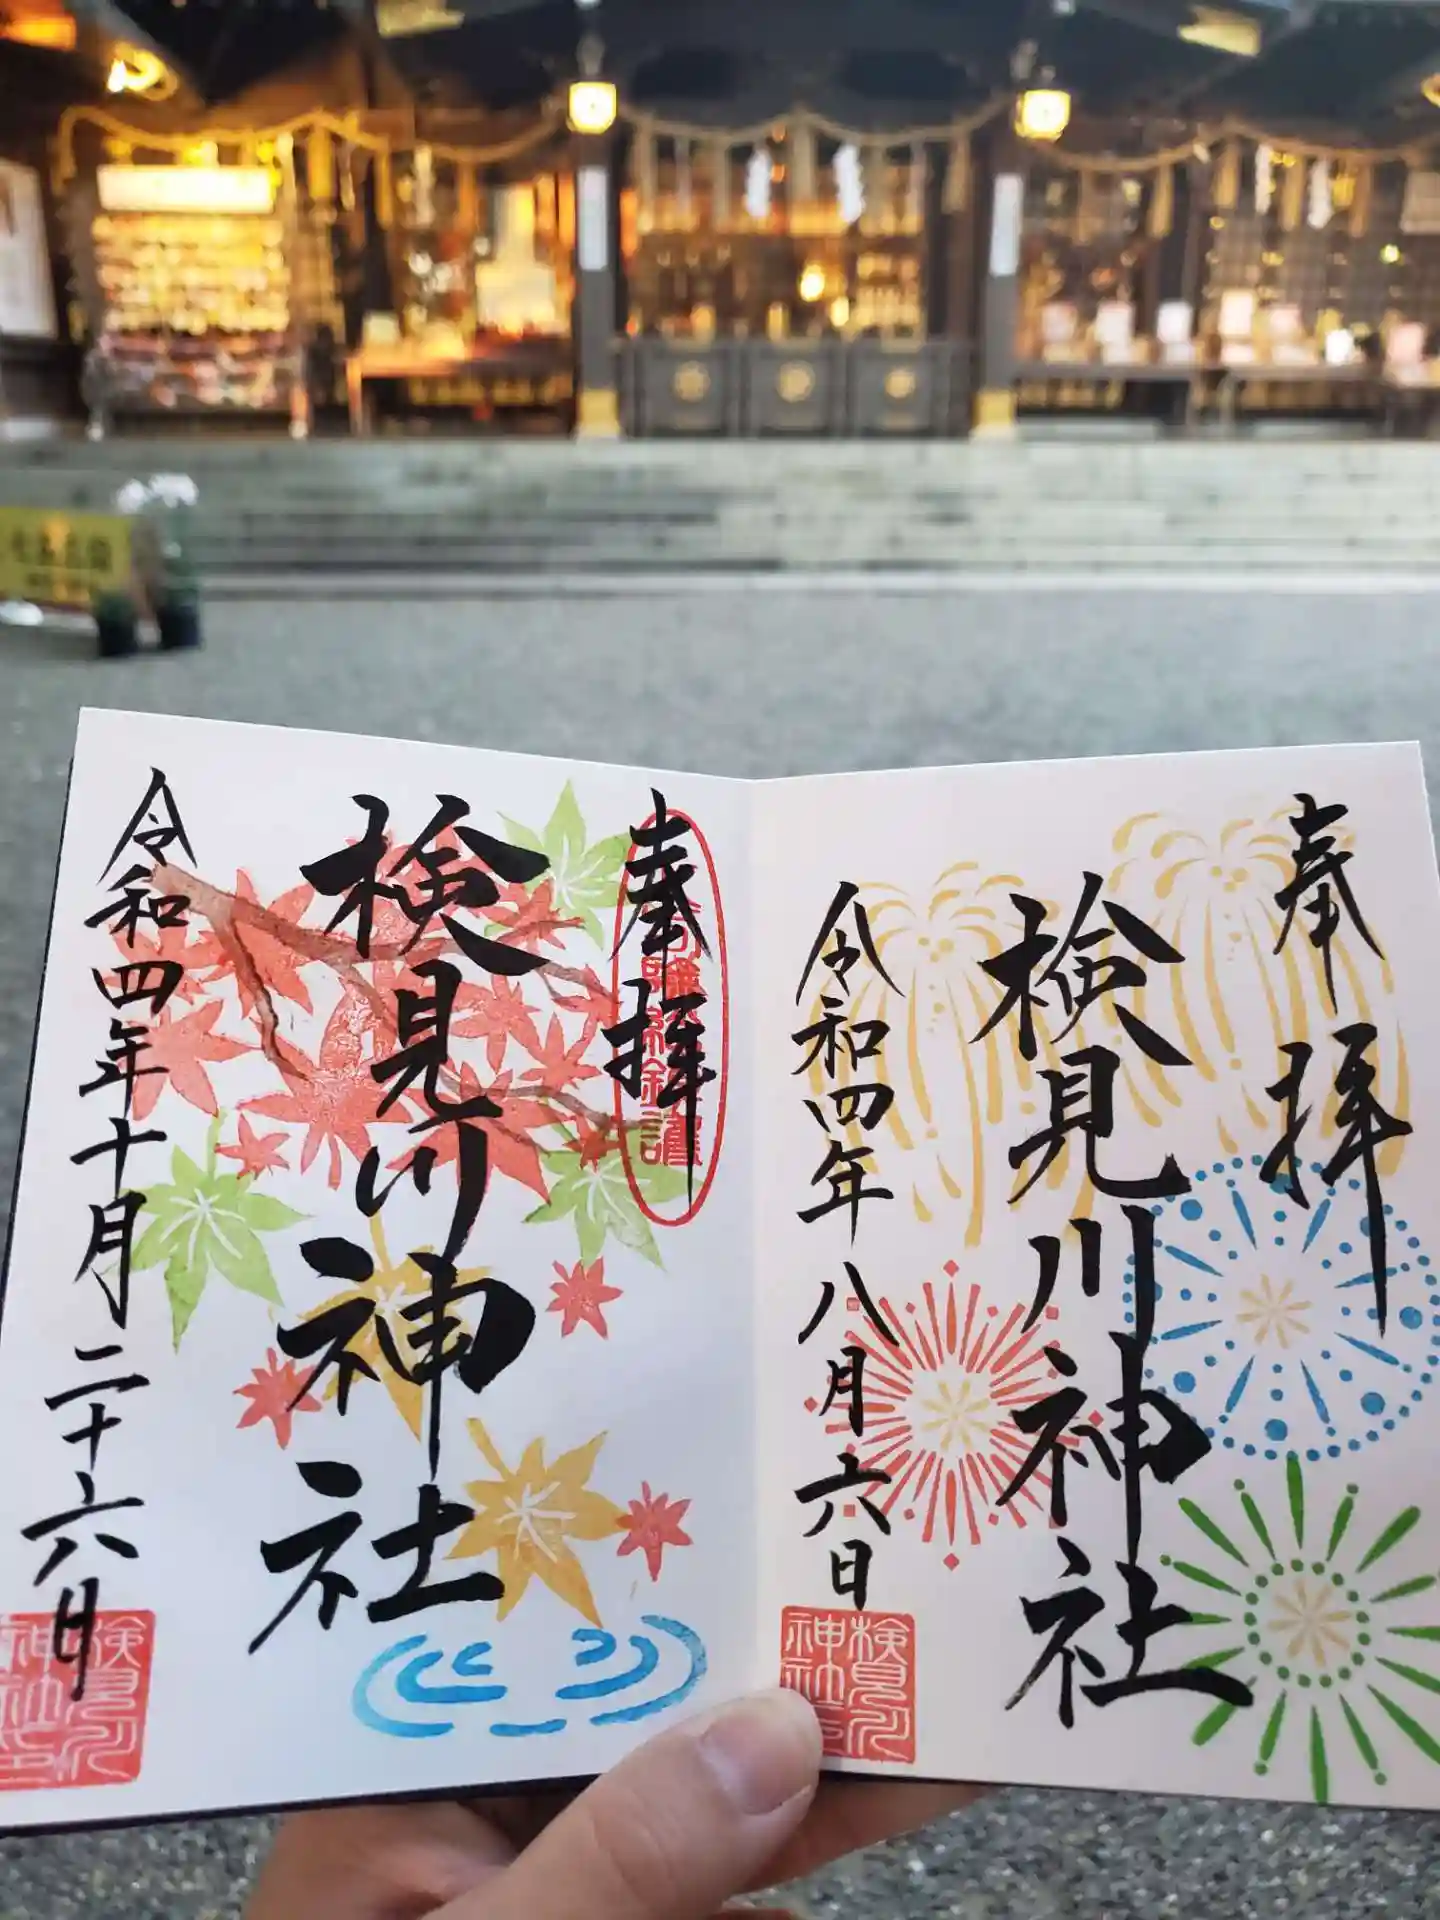 奉拝
検見川神社
令和四年八月六日
検見川
神社
奉拝
検見川神社
令和四年十月二十六日
検見川
神社印